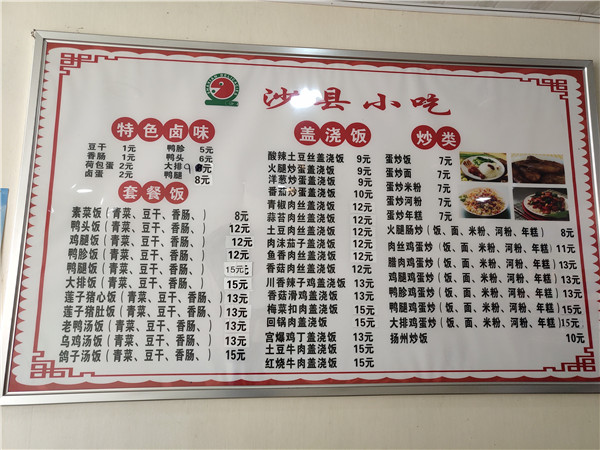 沙县小吃
特色卤味
豆干 1元 鸭胗 5元
香肠 1元 鸭头 6元
荷包蛋 2元 大排 9元
卤蛋 2元 鸭腿 8元
套餐饭
素菜饭（青菜、豆干、香肠、） 8元
鸭头饭（青菜、豆干、香肠、） 12元
鸡腿饭（青菜、豆干、香肠、） 12元
鸭胗饭（青菜、豆干、香肠、） 12元
鸭腿饭（青菜、豆干、香肠、） 15元
大排饭（青菜、豆干、香肠、） 15元
莲子猪心饭（青菜、豆干、香肠、） 13元
莲子猪肚饭（青菜、豆干、香肠、） 13元
老鸭汤饭（青菜、豆干、香肠、） 13元
乌鸡汤饭（青菜、豆干、香肠、） 13元
鸽子汤饭（青菜、豆干、香肠、） 15元
盖浇饭
酸辣土豆丝盖浇饭 9元
火腿炒蛋盖浇饭 9元
洋葱炒蛋盖浇饭 9元
番茄炒蛋盖浇饭 10元
青椒肉丝盖浇饭 12元
蒜苔肉丝盖浇饭 12元
土豆肉丝盖浇饭 12元
肉沫茄子盖浇饭 12元
鱼香肉丝盖浇饭 12元
香菇肉丝盖浇饭 12元
川香辣子鸡盖浇饭 13元
香菇滑鸡盖浇饭 13元
梅菜扣肉盖浇饭 15元
回锅肉盖浇饭 15元
宫爆鸡丁盖浇饭 13元
土豆牛肉盖浇饭 15元
红烧牛肉盖浇饭 15元
炒类
蛋炒饭 7元
蛋炒面 7元
蛋炒米粉 7元
蛋炒河粉 7元
蛋炒年糕 7元
火腿肠炒（饭、面、米粉、河粉、年糕） 8元
肉丝鸡蛋炒（饭、面、米粉、河粉、年糕） 11元
腊肉鸡蛋炒（饭、面、米粉、河粉、年糕） 13元
鸡腿鸡蛋炒（饭、面、米粉、河粉、年糕） 13元
鸭胗鸡蛋炒（饭、面、米粉、河粉、年糕） 13元
鸭腿鸡蛋炒（饭、面、米粉、河粉、年糕） 13元
大排鸡蛋炒（饭、面、米粉、河粉、年糕） 15元
扬州炒饭 10元